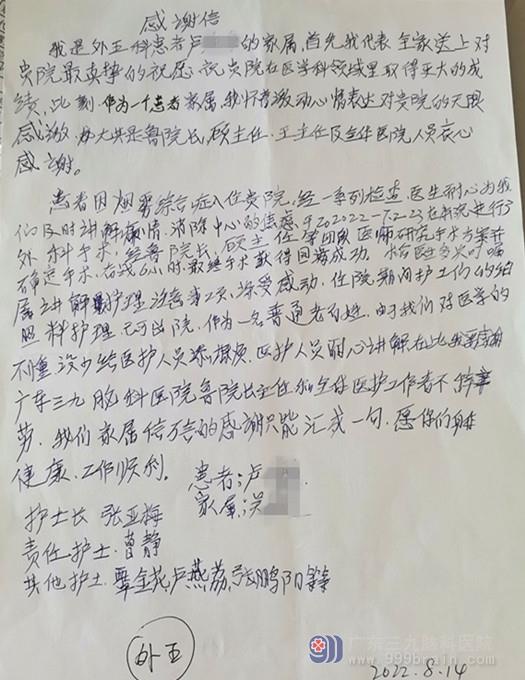 感谢信
我是外五科患者卢 的家属,首先我代表全家送上对
贵院最真挚的祝愿,祝贵院在医学科领域里取得巨大的成
绩,此刻,作为一个患者家属,我怀着激动心情表达对贵院的无限
感激.尤其是鲁院长,硕主任.王主任及全体医院人员衷心
感谢。
患者因烟雾综合症入住贵院,经一系列检查.医生耐心为我
们及时讲解病情,消除心中的焦虑,于202022-7.23在 进行了
外科手术,经鲁院长,硕主任等 医师研究手术方案并
确定手术,在 6小时,最终手术获得圆满成功.术后医生多次叮嘱
属主讲解 护理注意事项,深受感动,住院期间护士们的细
照料护理.已可出院,作为一名普通老百姓,由于我们对医学的
不懂没少给医护人员添麻烦.医护人员耐心讲解,在此我
广东三九脑科医院鲁院长主任和全体医护工作者不辞辛
劳.我们家属信万言的感谢只能汇成一句.愿你们身体
健康.工作顺利.
患者:卢
家属:
护士长 张亚梅
责任护士.曾静
其他护士.覃金花,卢燕荔,张鹏阳
外五
2022.8.14
广东三九脑科医院
www.999brain.com